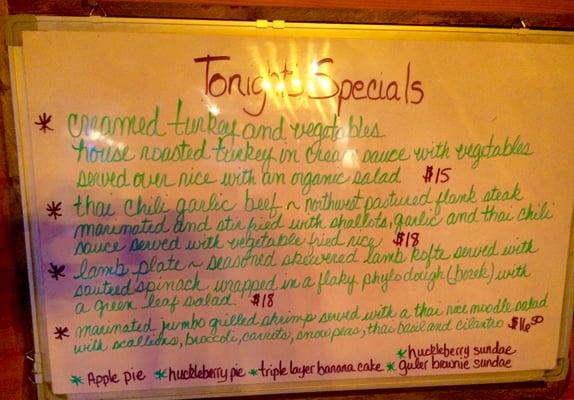 Tonight's Specials
* creamed turkey and vegetables
house roasted turkey in cream sauce with vegetables
served over rice with an organic salad $15
* thai chili garlic beef ~ northwest pastured flank steak
marinated and stir fried with shallots, garlic and thai chili
sauce served with vegetable fried rice $18
* lamb plate ~ seasoned skewered lamb kofta served with
sauteed spinach wrapped in a flaky phylo dough (borek) with
a green leaf salad $18
* marinated jumbo grilled shrimp served with a thai rice noodle salad
with scallions, broccoli, carrots, snow peas, thai basil and cilantro $16.50
* huckleberry sundae
* Apple pie * huckleberry pie * triple layer banana cake * guler brownie sundae